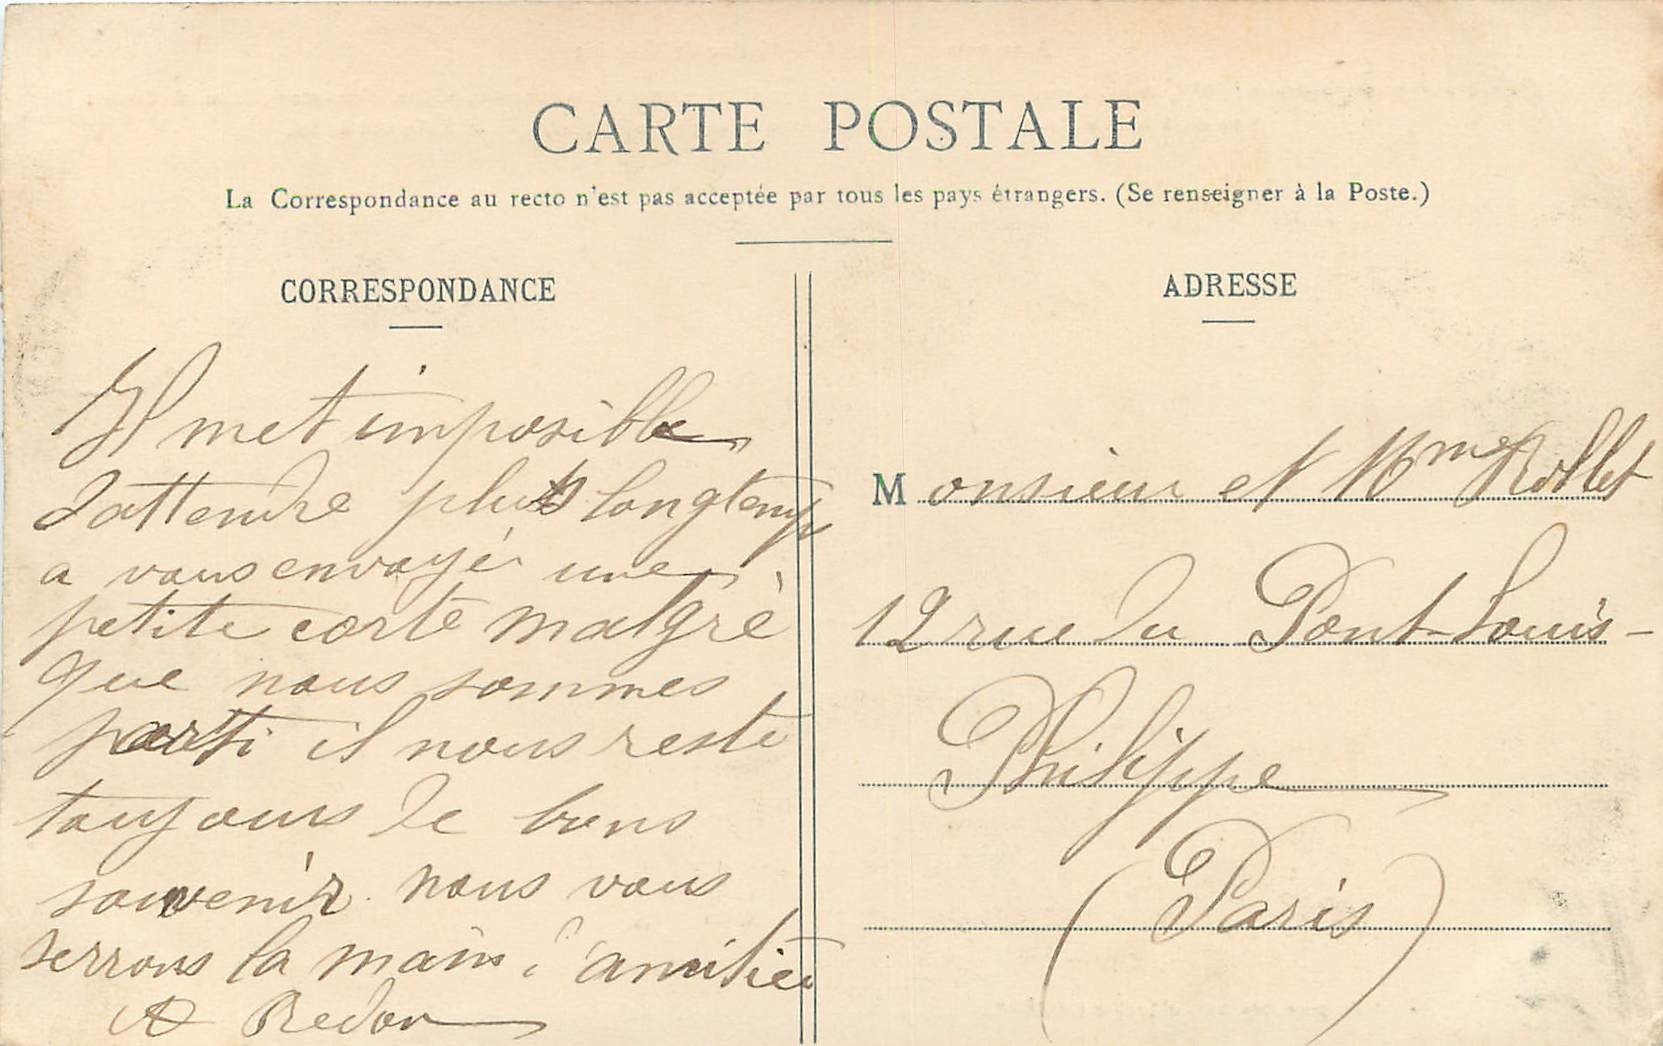 CARTE POSTALE
La Correspondance au recto n'est pas acceptée par tous les pays étrangers. (Se renseigner à la Poste.)
CORRESPONDANCE
Il met imposible
dattendre plus longtemps
a vous envoyé une
petite carte malgrè
que nous sommes
parti il nous reste
toujours de bons
souvenir nous vous
serrons la main d'amitiée
A Redon
ADRESSE
Monsieur et Mme Rollet
12 rue du Pont-Louis-
Philippe
(Paris)